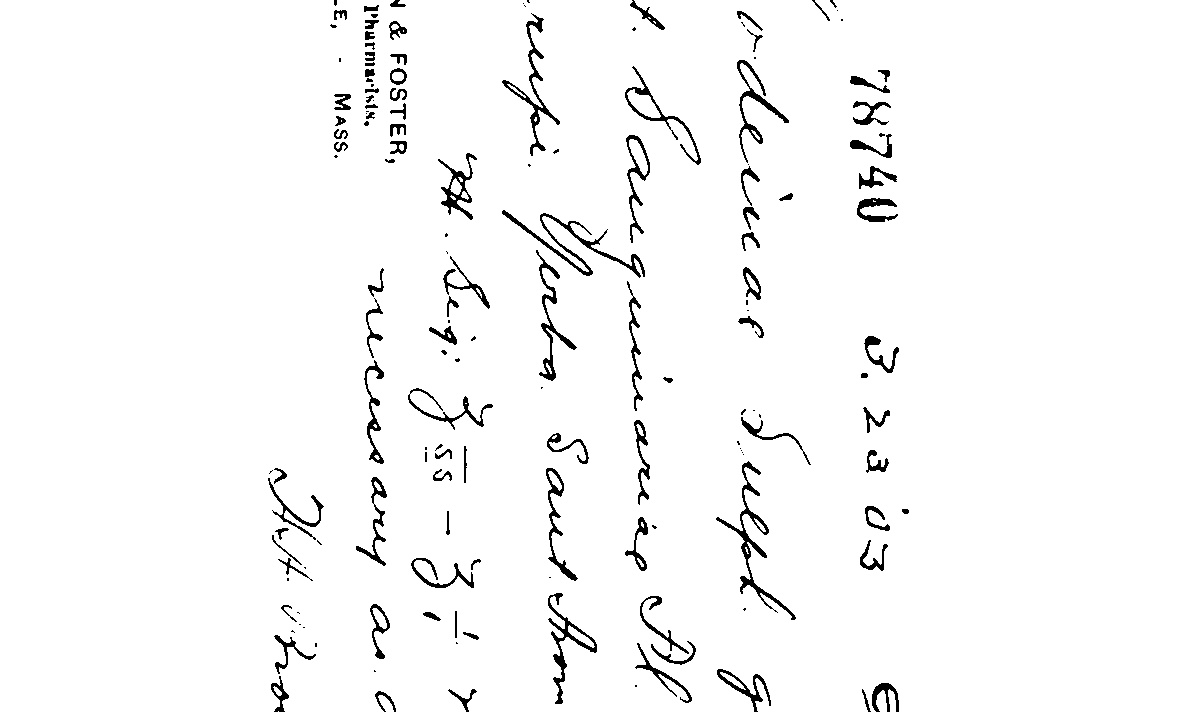 78740 3.23.03
odeinae Sulph. g
t. Sanguinariae Fl.
rupi. Yerba Sant. Arom
M. Sig: ʒ s̅s̅ – ʒ ī
necessary as
N & FOSTER,
Pharmacists.
LE, - MASS.